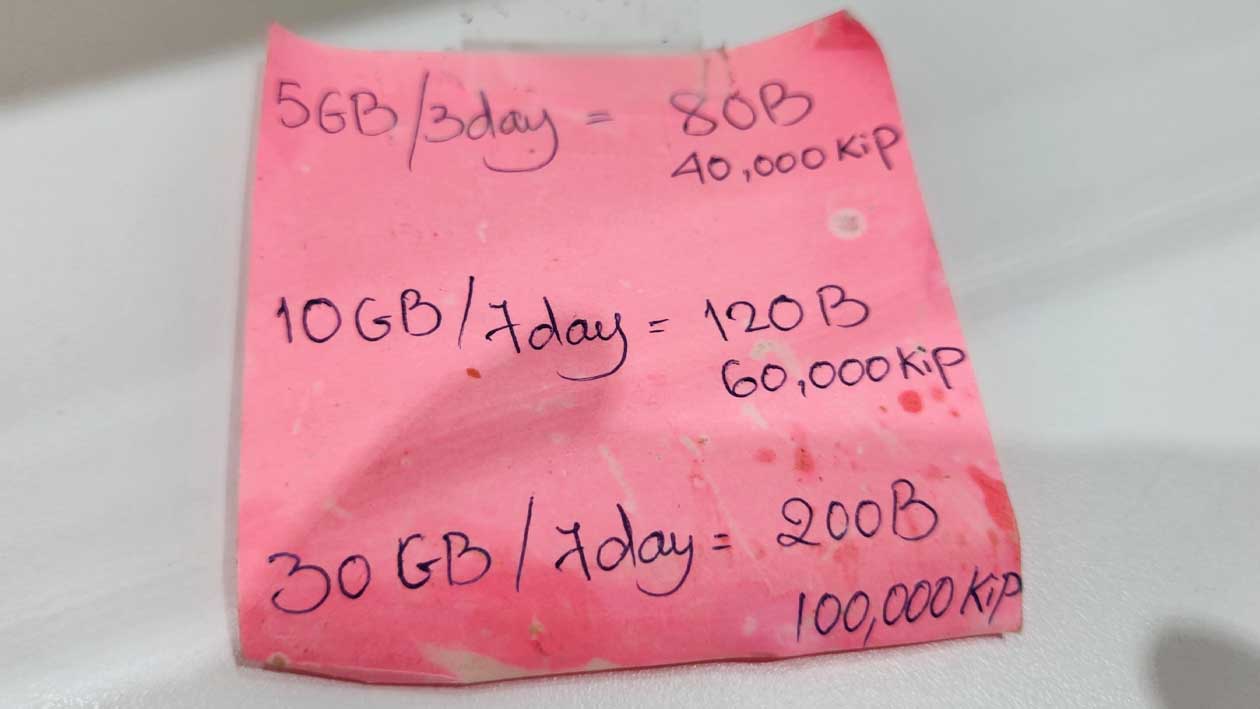 5GB/3day = 80B
40,000 Kip
10GB/7day = 120B
60,000 Kip
30 GB/7day = 200B
100,000 Kip